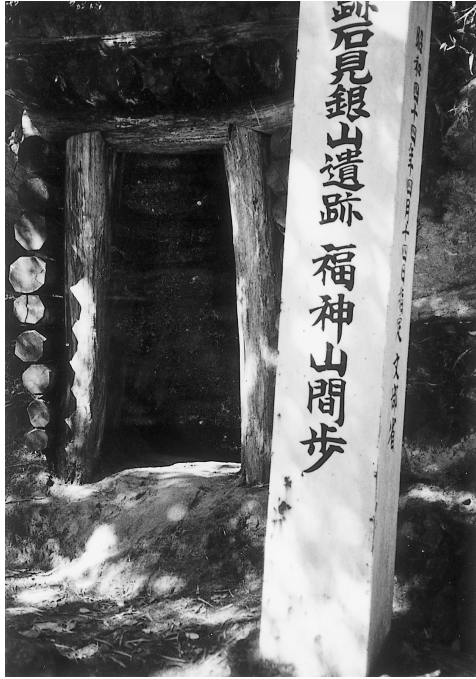 跡石見銀山遺跡 福神山間歩
昭和四十四年四月十四日指定 文部省